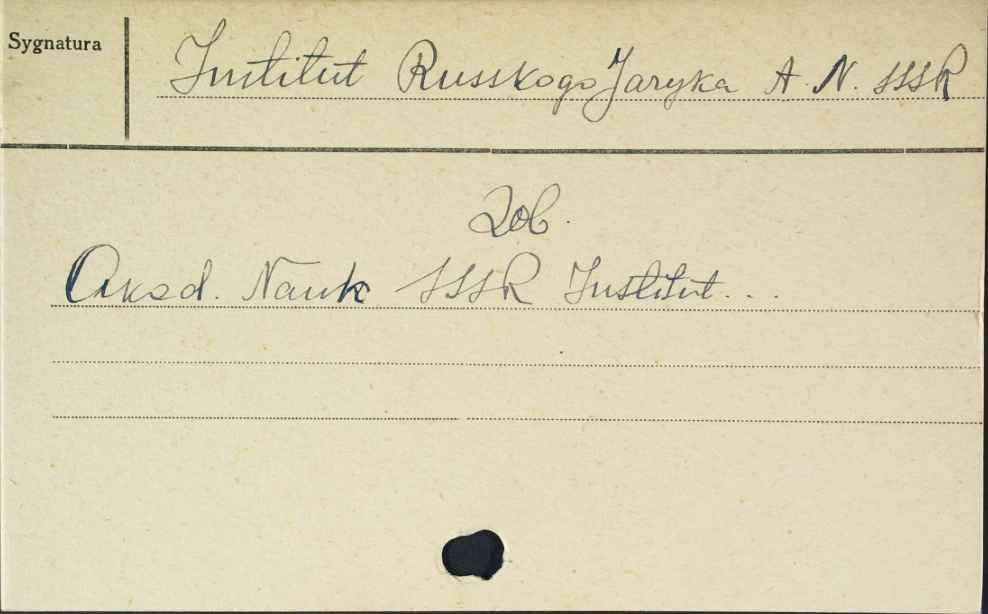 Sygnatura
Institut Russkogo Jazyka A. N. SSSR
Zob.
Akad. Nauk SSSR Institut...